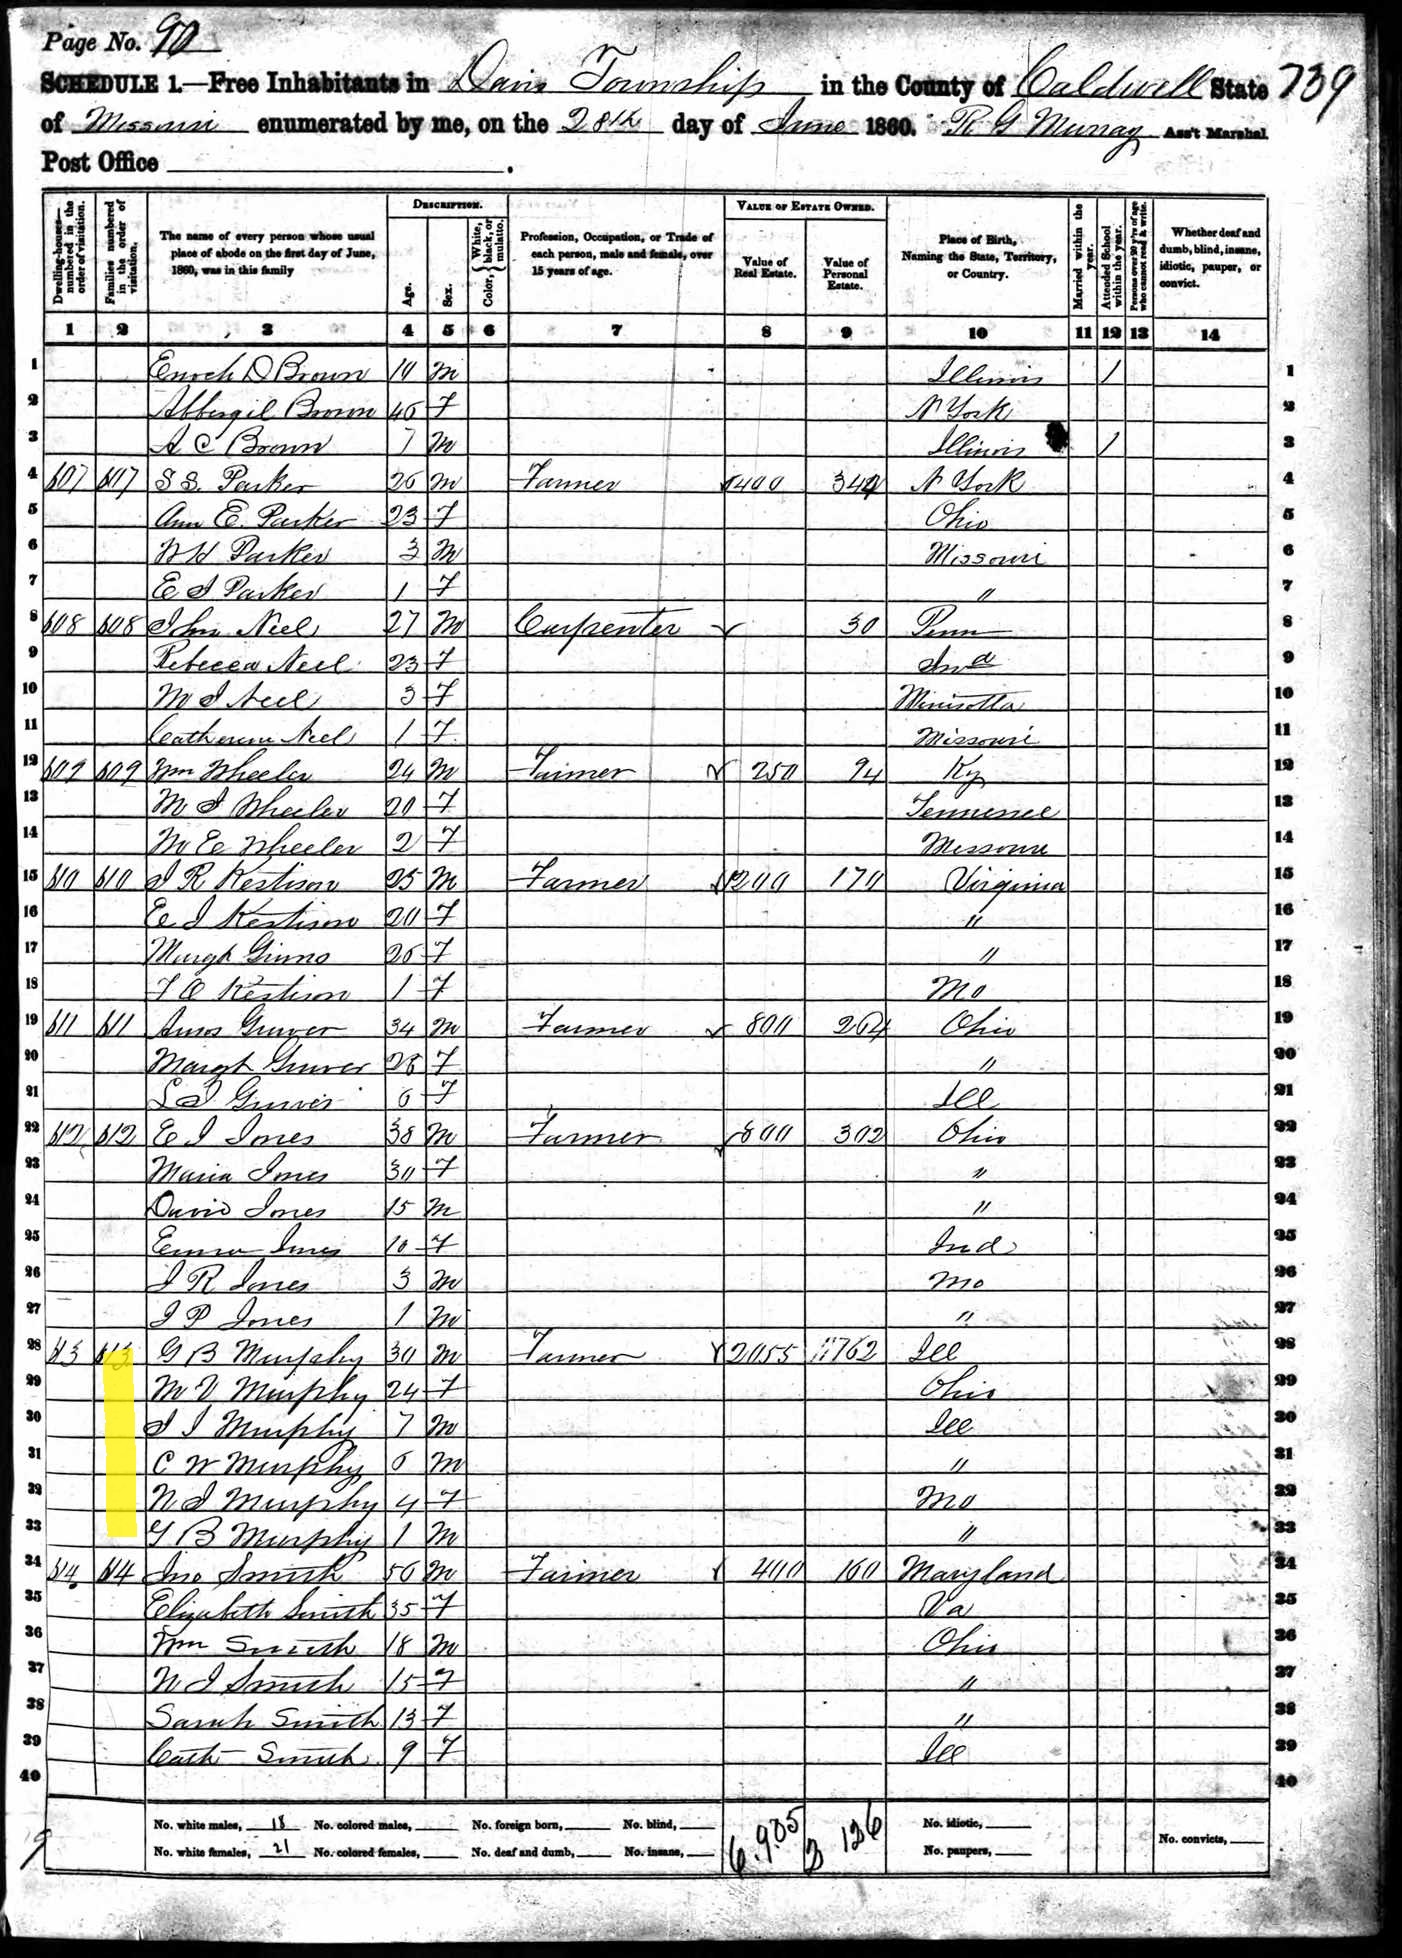 Page No. 90
SCHEDULE 1.—Free Inhabitants in Davis Township in the County of Caldwell State 739
of Missouri enumerated by me, on the 28th day of June 1860. R G Murray Ass't Marshal.
Post Office
Dwelling-houses—numbered in the order of visitation. Families numbered in the order of visitation. The name of every person whose usual place of abode on the first day of June, 1860, was in this family DESCRIPTION. Age. Sex. Color, White, black, or mulatto. Profession, Occupation, or Trade of each person, male and female, over 15 years of age. VALUE OF ESTATE OWNED. Value of Real Estate. Value of Personal Estate. Place of Birth, Naming the State, Territory, or Country. Married within the year. Attended School within the year. Persons over 20 y'rs of age who cannot read & write. Whether deaf and dumb, blind, insane, idiotic, pauper, or convict.
1 2 3 4 5 6 7 8 9 10 11 12 13 14
1 Enoch D Brown M Illinois 1 1
2 Abbergil Brown F N York 2
3 A C Brown 7 M Illinois 1 3
4 607 607 S S. Parker 26 M Farmer 400 N York 4
5 Ann E. Parker 23 F Ohio 5
6 W H Parker 3 M Missouri 6
7 E J Parker 1 F " 7
8 608 608 John Neel 27 M Carpenter 30 Penn 8
9 Rebecca Neel 23 F Ind 9
10 M J Neel 3 F Minisotta 10
11 Catherine Neel 1 F Missouri 11
12 609 609 Wm Wheeler 24 M Farmer 250 94 Ky 12
13 M J Wheeler 20 F Tennessee 13
14 M E Wheeler 2 F Missouri 14
15 610 610 J R Kestison 25 M Farmer 1200 170 Virginia 15
16 E J Kestison 20 F " 16
17 Margt 26 F " 17
18 F O Kestison 1 F Mo 18
19 611 611 Amos Gruver 34 M Farmer 800 264 Ohio 19
20 Margt Gruver 28 F " 20
21 L J Gruver 6 F Ill 21
22 612 612 E J Jones 38 M Farmer 800 302 Ohio 22
23 Maria Jones 30 F " 23
24 David Jones 15 M " 24
25 Emma Jones 10 F Ind 25
26 J R Jones 3 M Mo 26
27 J P Jones 1 M " 27
28 613 613 G B Murphy 30 M Farmer 2055 762 Ill 28
29 M V Murphy 24 F Ohio 29
30 J J Murphy 7 M Ill 30
31 C W Murphy 6 M " 31
32 N J Murphy 4 F Mo 32
33 G B Murphy 1 M " 33
34 614 614 Jno Smith 56 M Farmer 400 160 Maryland 34
35 Elizabeth Smith 35 F Va 35
36 Wm Smith 18 M Ohio 36
37 N J Smith 15 F " 37
38 Sarah Smith 13 F " 38
39 Cath Smith 9 F Ill 39
40 40
No. white males, 18 No. colored males, No. foreign born, No. blind, 6,905 2 126 No. idiotic,
No. white females, 21 No. colored females, No. deaf and dumb, No. insane, No. paupers, No. convicts,